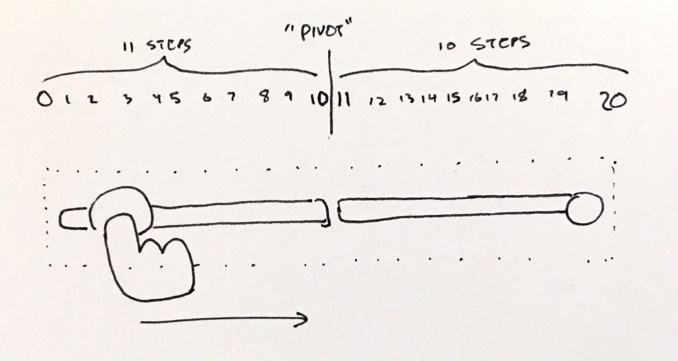 "PIVOT"
11 STEPS 10 STEPS
0 1 2 3 4 5 6 7 8 9 10 11 12 13 14 15 16 17 18 19 20